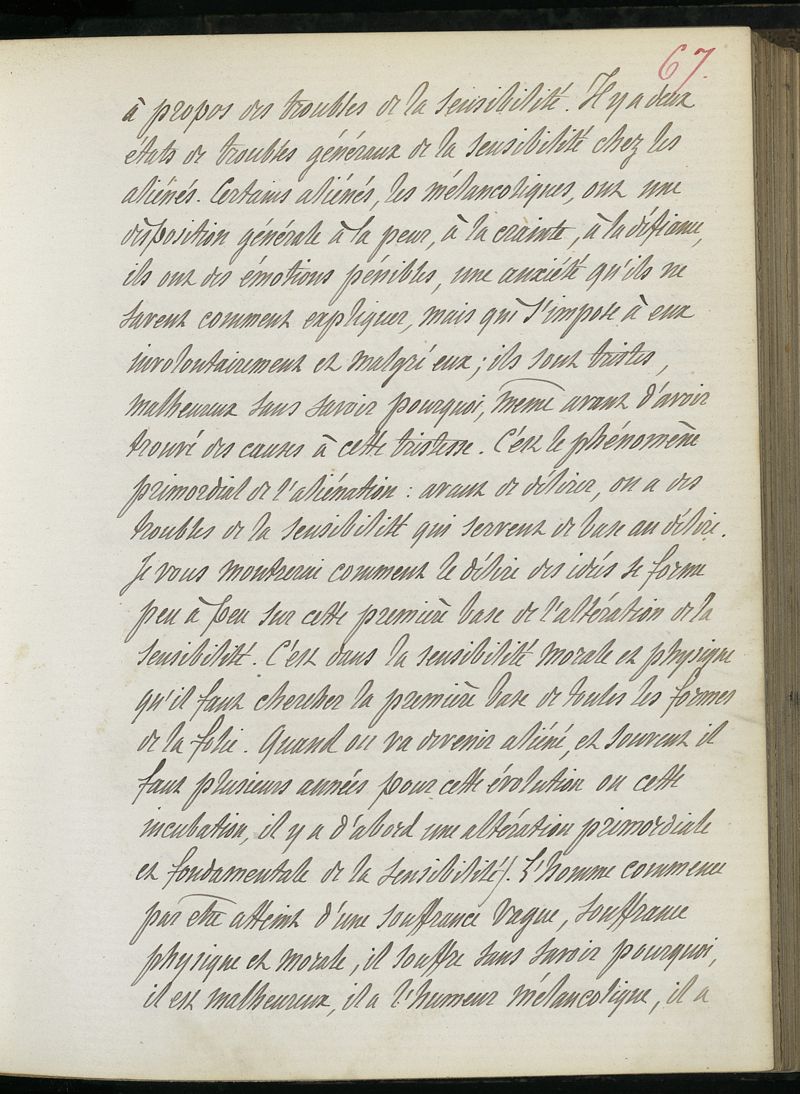 67.
à propos des troubles de la sensibilité. Il y a deux
états de troubles généraux de la sensibilité chez les
aliénés. Certains aliénés, les mélancoliques, ont une
disposition générale à la peur, à la crainte, à la défiance,
ils ont des émotions pénibles, une anxiété qu'ils ne
savent comment expliquer, mais qui s'impose à eux
involontairement et malgré eux; ils sont tristes,
malheureux sans savoir pourquoi, même avant d'avoir
trouvé des causes à cette tristesse. C'est le phénomène
primordial de l'aliénation : avant de délirer, on a des
troubles de la sensibilité qui servent de base au délire.
Je vous montrerai comment le délire des idées se forme
peu à peu sur cette première base de l'altération de la
sensibilité. C'est dans la sensibilité morale et physique
qu'il faut chercher la première base de toutes les formes
de la folie. Quand on va devenir aliéné, et souvent il
faut plusieurs années pour cette évolution ou cette
incubation, il y a d'abord une altération primordiale
et fondamentale de la sensibilité). L'homme commence
par être atteint d'une souffrance vague, souffrance
physique et morale, il souffre sans savoir pourquoi,
il est malheureux, il a l'humeur mélancolique, il a